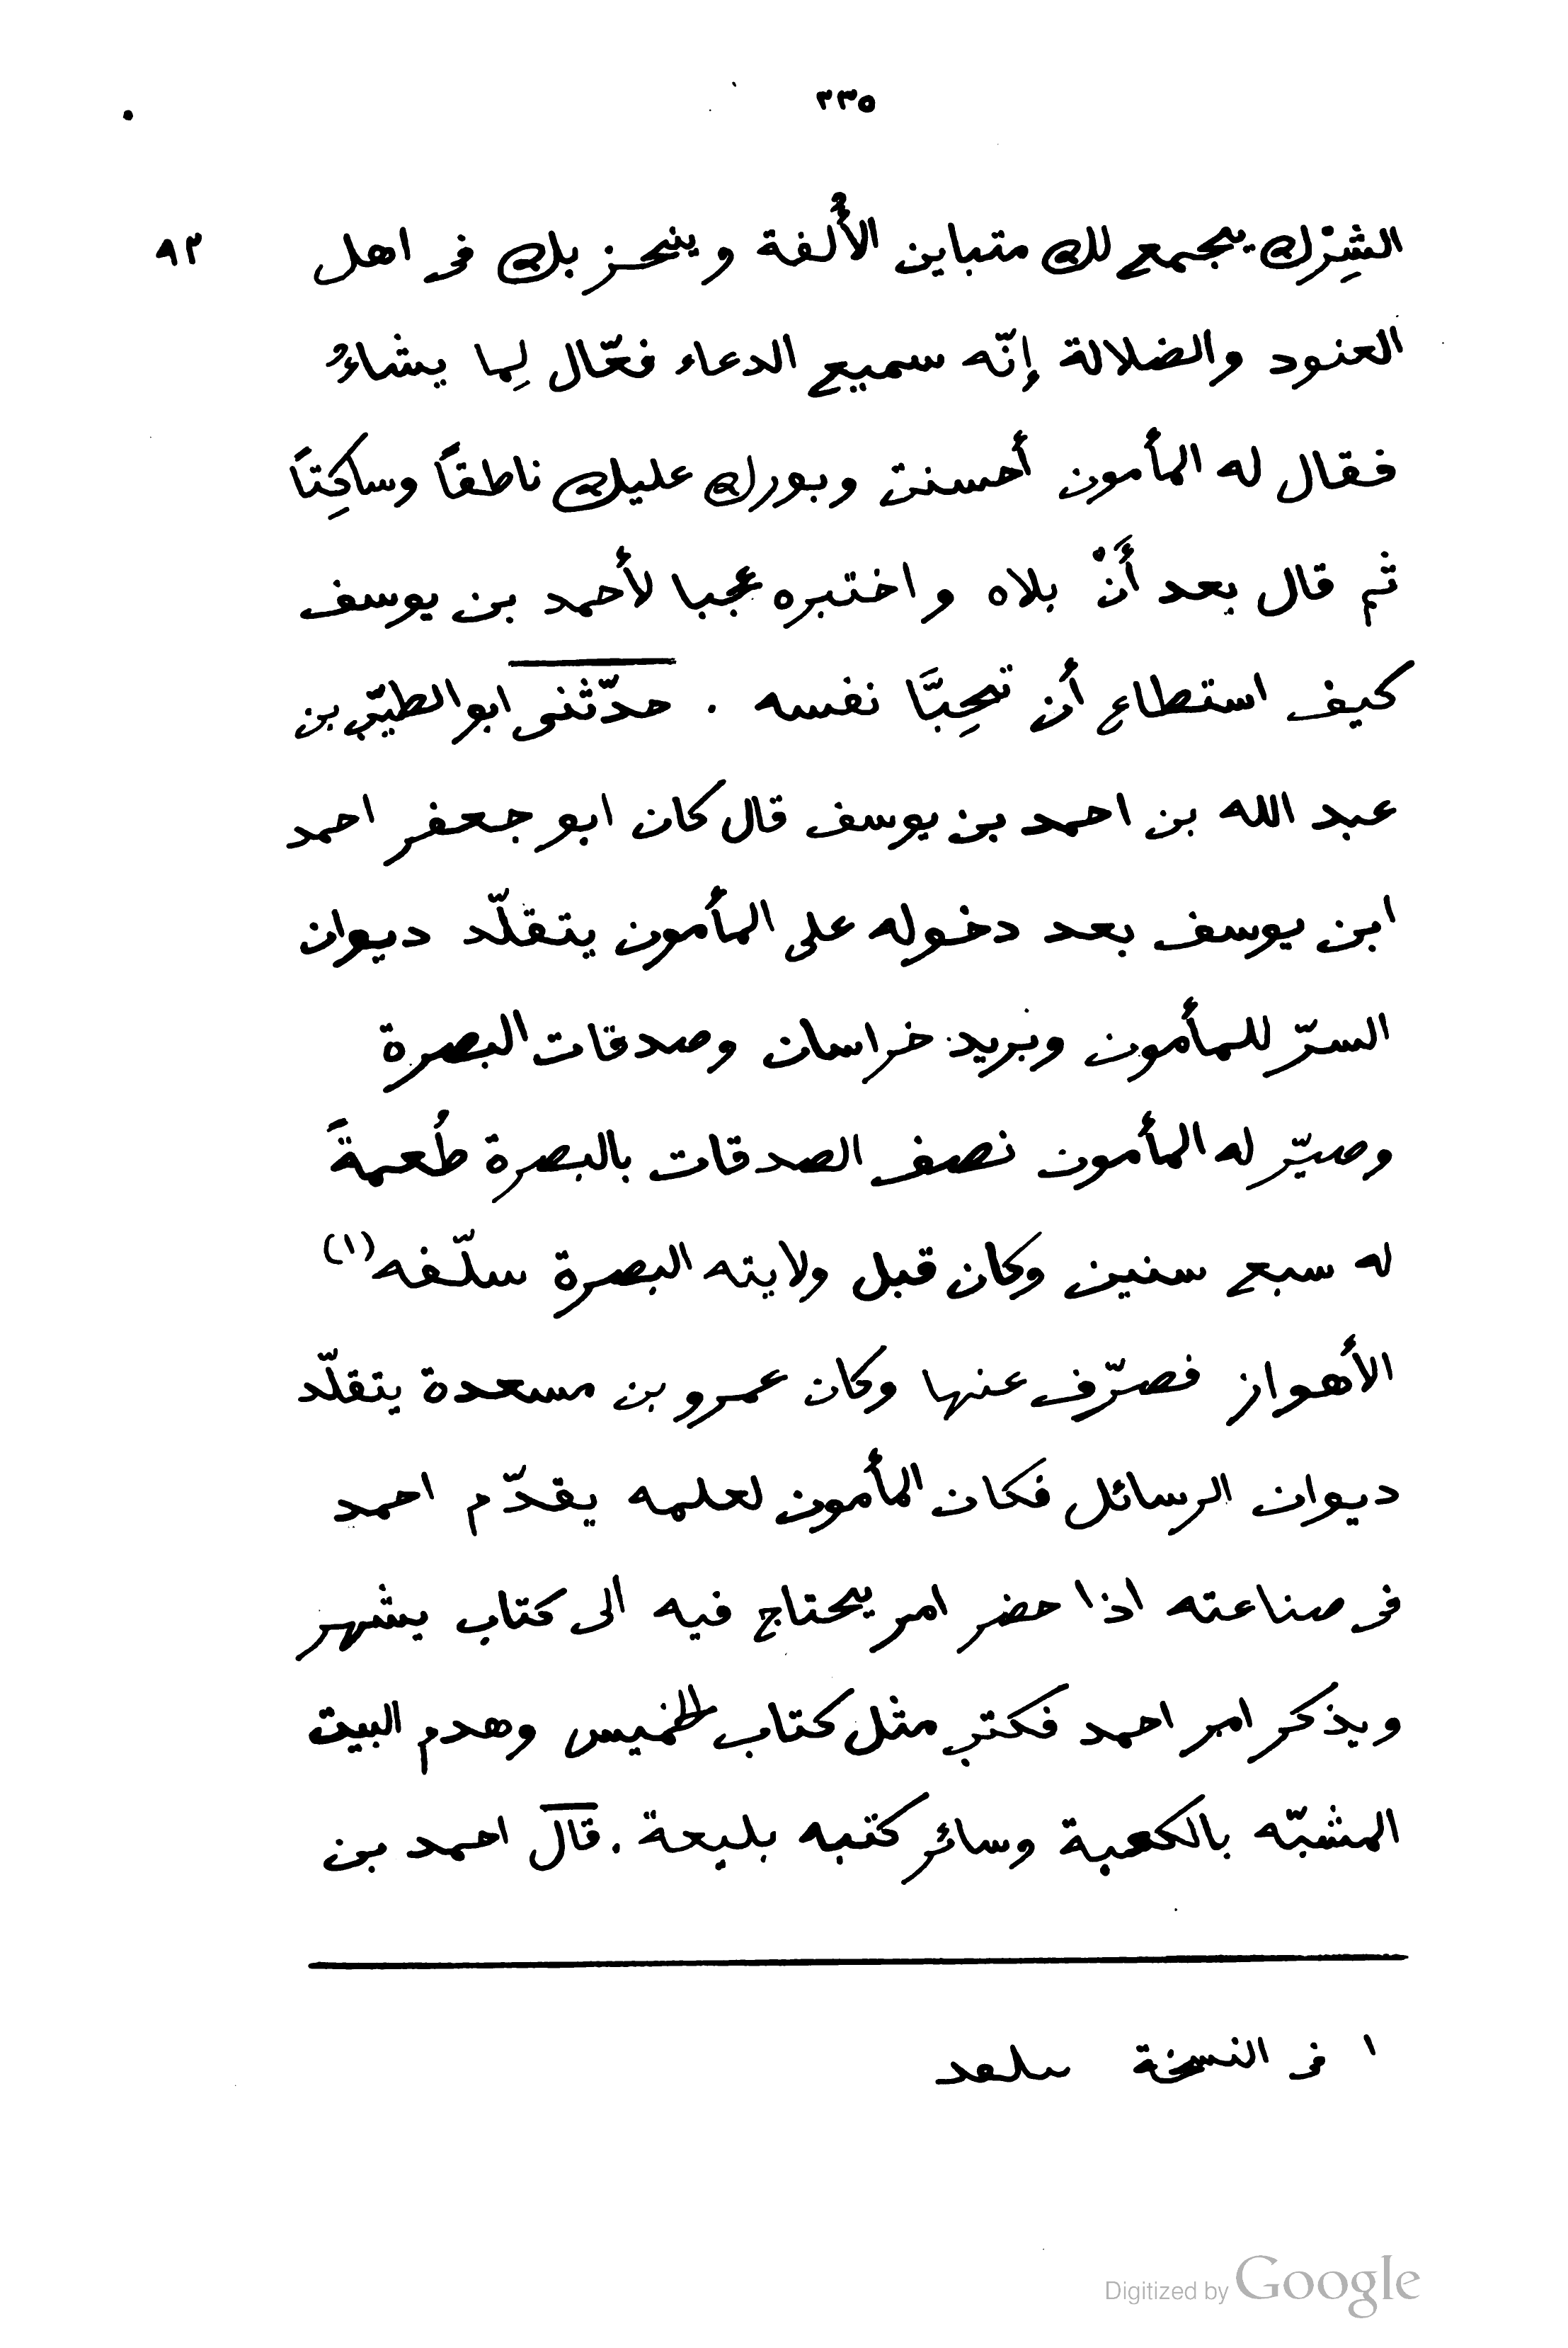 ٢٣٥
الشِرْك يجمع لك متباين الأُلفة وينحز بك فى اهل ٩٢
العنود والضلالة إنّه سميع الدعاء فعّال لِما يشاءُ
فقال له المأمون أحسنت وبورك عليك ناطقاً وساكِتاً
ثم قال بعد أَنْ بلاه واختبره عجبا لأحمد بن يوسف
كيف استطاع أن تحِبَّا نفسه . حدّثنى ابو الطيّب بن
عبد الله بن احمد بن يوسف قال كان ابو جعفر احمد
ابن يوسف بعد دخوله على المأمون يتقلّد ديوان
السرّ للمأمون وبريد خراسان وصدقات البصرة
وصيّر له المأمون نصف الصدقات بالبصرة طُعمةً
له سبع سنين وكان قبل ولايته البصرة سلّفه (١)
الأهواز فصرّف عنها وكان عمرو بن مسعدة يتقلّد
ديوان الرسائل فكان المأمون لعلمه يقدّم احمد
فى صناعته اذا حضر امر يحتاج فيه الى كتاب يشهر
ويذكر امر احمد فكتب مثل كتاب الخميس وهدم البيت
المشبّه بالكعبة وسائر كتبه بليعة . قال احمد بن
١ فى النسخة سلعد
Digitized by Google